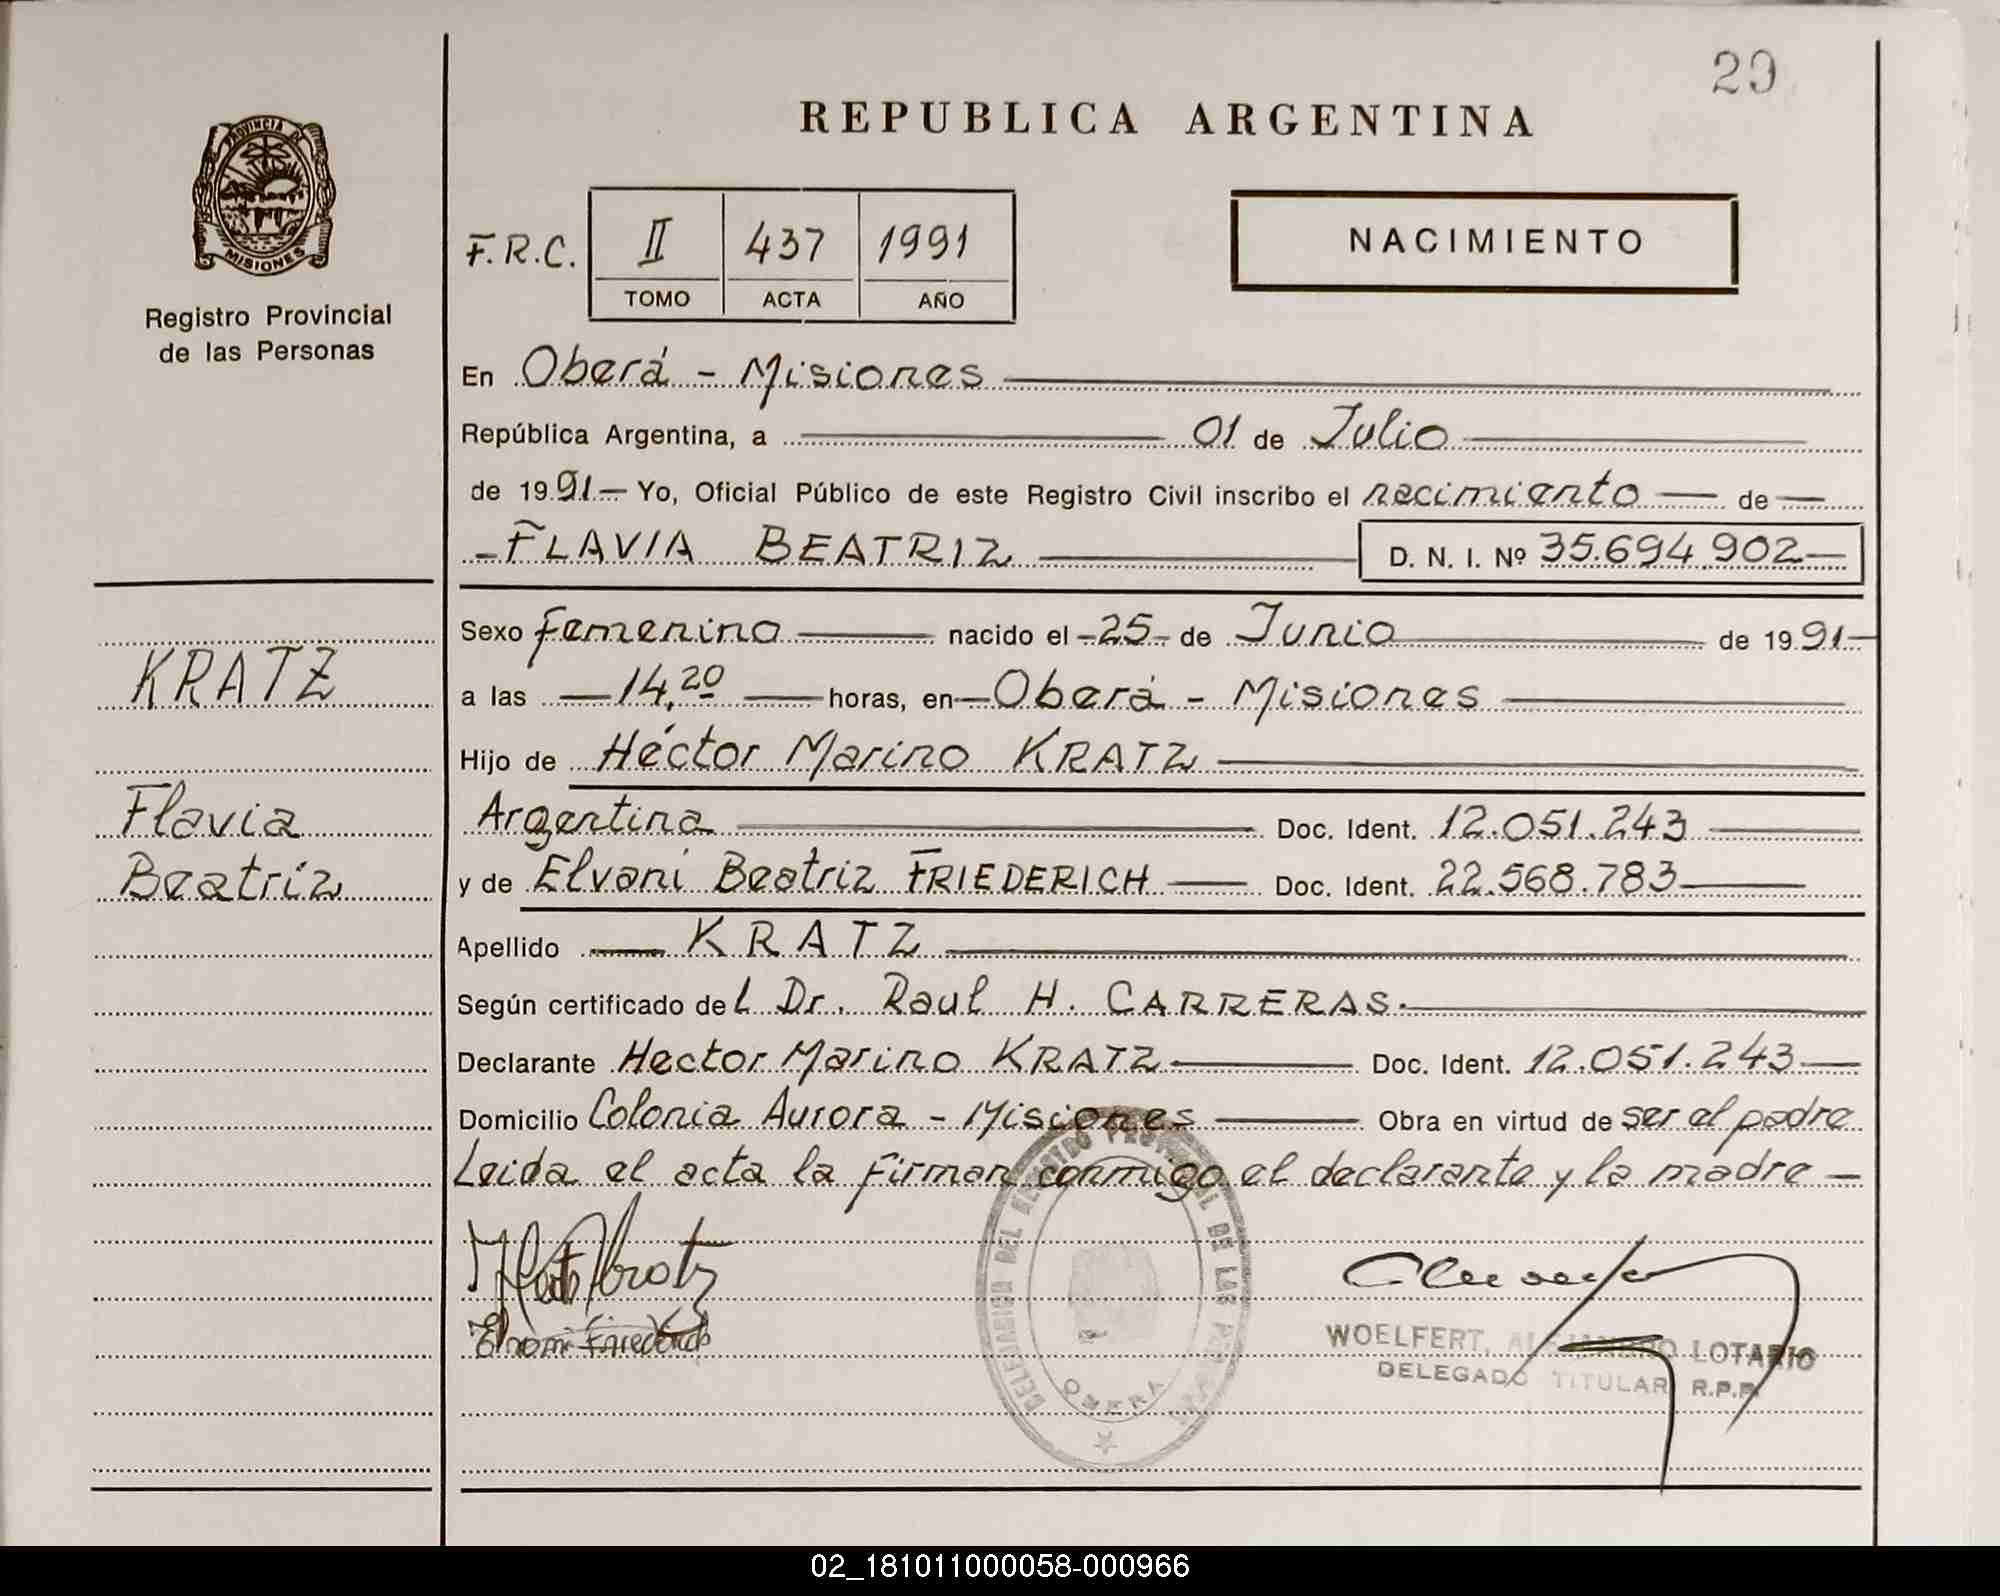 29
REPUBLICA ARGENTINA
PROVINCIA DE
MISIONES
Registro Provincial
de las Personas
F.R.C.
II 437 1991
TOMO ACTA AÑO
NACIMIENTO
En Oberá - Misiones
República Argentina, a 01 de Julio
de 1991 - Yo, Oficial Público de este Registro Civil inscribo el nacimiento de
- FLAVIA BEATRIZ D. N. I. Nº 35.694.902
Sexo femenino nacido el - 25 - de Junio de 1991 -
KRATZ
a las 14,20 horas, en Oberá - Misiones
Hijo de Héctor Marino KRATZ
Flavia
Beatriz
Argentina Doc. Ident. 12.051.243
y de Elvani Beatriz FRIEDERICH Doc. Ident. 22.568.783
Apellido KRATZ
Según certificado del Dr. Raul H. CARRERAS.
Declarante Hector Marino KRATZ Doc. Ident. 12.051.243
Domicilio Colonia Aurora - Misiones Obra en virtud de ser el padre
Leida el acta la firman conmigo el declarante y la madre -
DELEGACION DEL REGISTRO PROVINCIAL DE LAS PERSONAS
OBERA
WOELFERT, ALEJANDRO LOTARIO
DELEGADO TITULAR R.P.P.
02_181011000058-000966